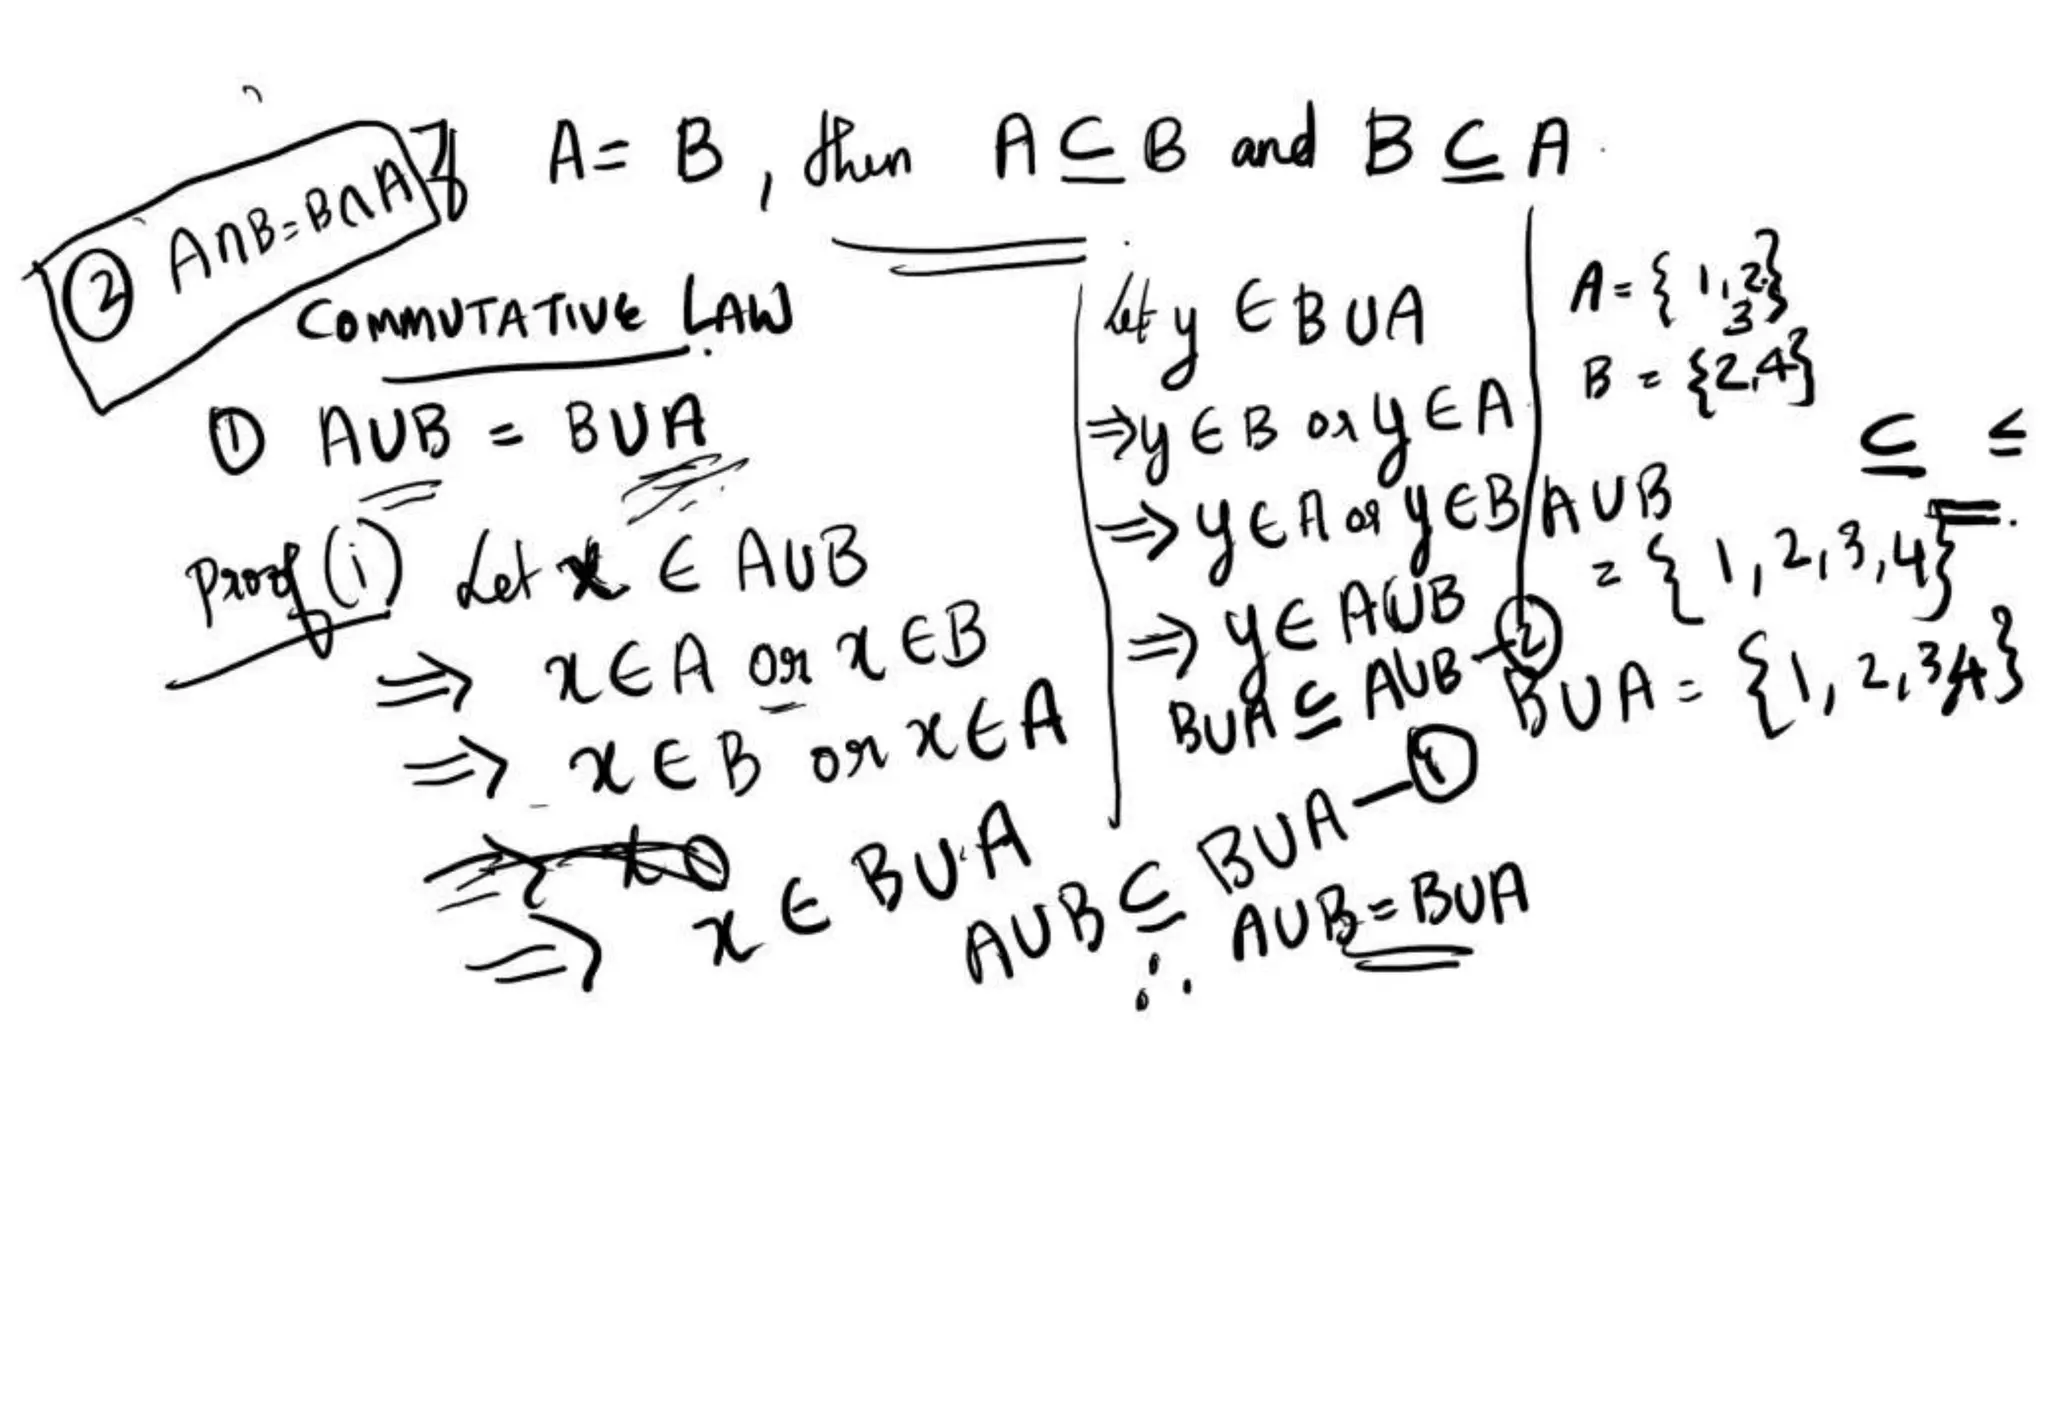 If A = B, then A ⊆ B and B ⊆ A.
② A∩B = B∩A
COMMUTATIVE LAW
① A∪B = B∪A
Proof (i) Let x ∈ A∪B
⇒ x∈A or x∈B
⇒ x∈B or x∈A
⇒ x ∈ B∪A
A∪B ⊆ B∪A — ①
Let y ∈ B∪A
⇒ y∈B or y∈A
⇒ y∈A or y∈B
⇒ y∈ A∪B
B∪A ⊆ A∪B — ②
∴ A∪B = B∪A
A = { 1, 2, 3}
B = {2,4}
⊆ ≤
=.
A∪B
= { 1, 2, 3, 4}
B∪A = {1, 2, 3 4}